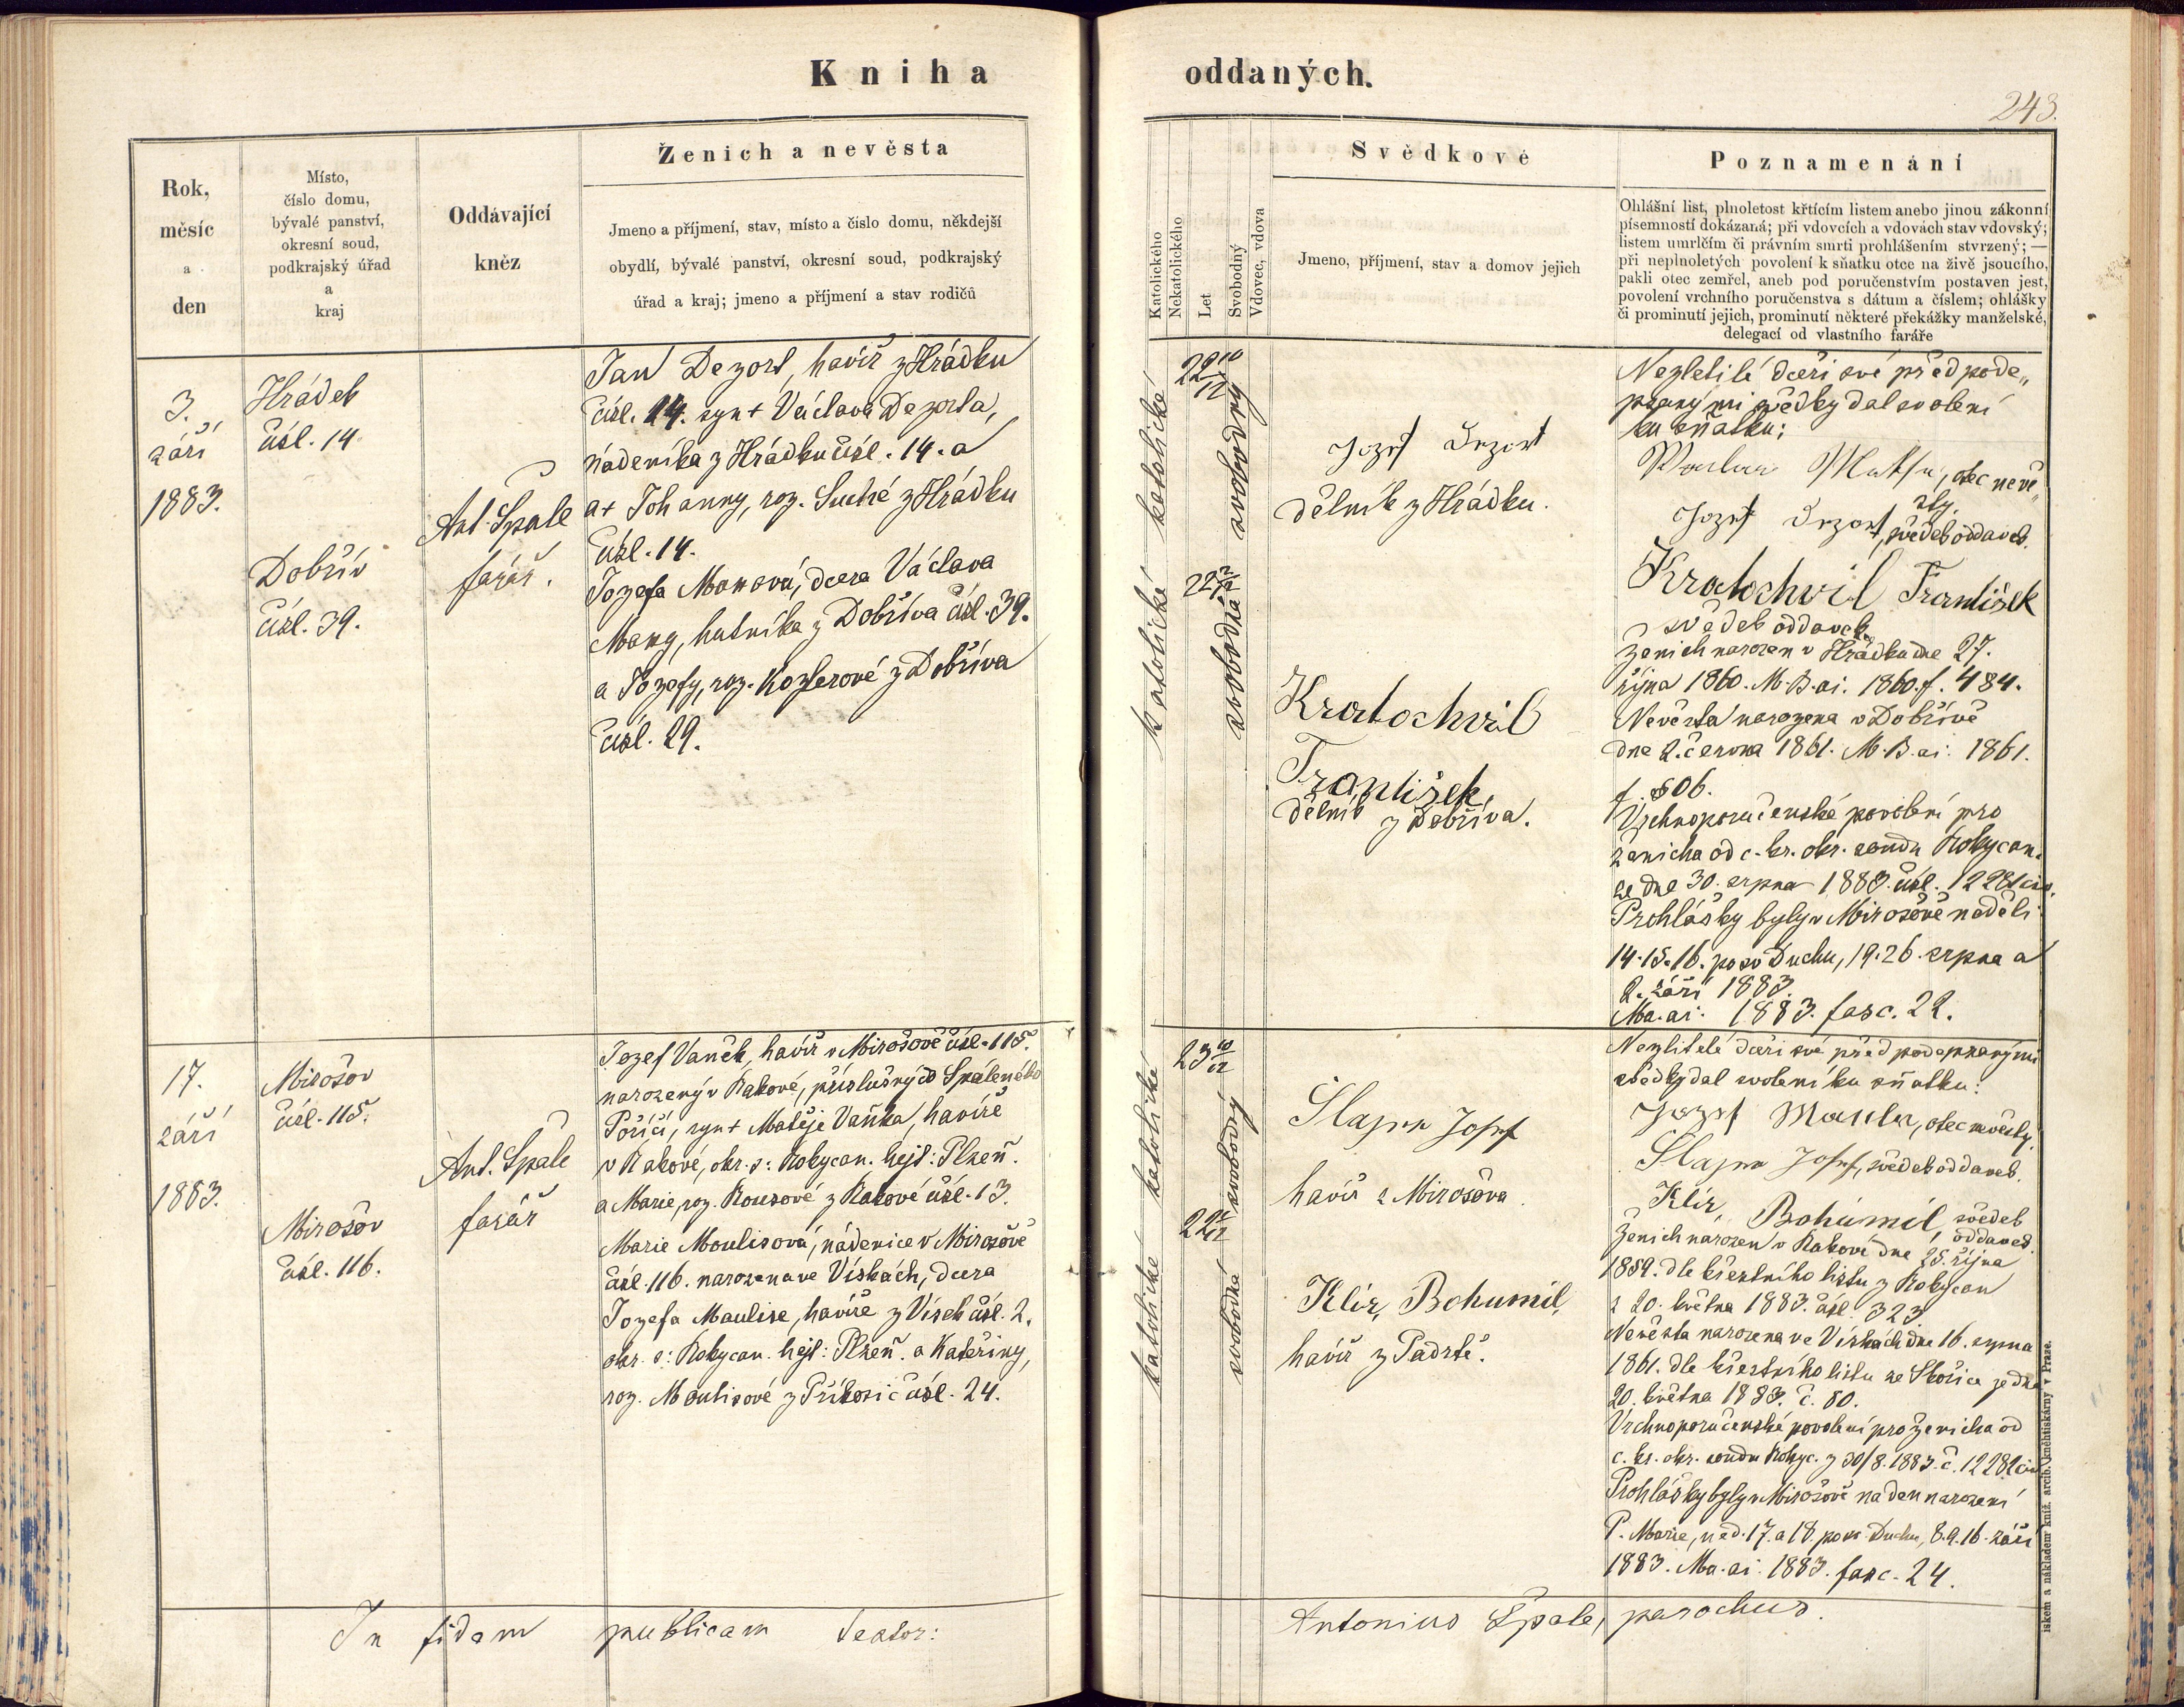 Kniha
oddaných.
243.
Rok,
měsíc
a
den
Místo,
číslo domu,
bývalé panství,
okresní soud,
podkrajský úřad
a
kraj
Oddávající
kněz
Ženich a nevěsta
Jmeno a příjmení, stav, místo a číslo domu, někdejší
obydlí, bývalé panství, okresní soud, podkrajský
úřad a kraj; jmeno a příjmení a stav rodičů
Katolického
Nekatolického
Let
Svobodný
Vdovec, vdova
Svědkové
Jmeno, příjmení, stav a domov jejich
Poznamenání
Ohlášní list, plnoletost křtícím listem anebo jinou zákonní
písemností dokázaná; při vdovcích a vdovách stav vdovský;
listem umrlčím či právním smrti prohlášením stvrzený; —
při neplnoletých povolení k sňatku otce na živě jsoucího,
pakli otec zemřel, aneb pod poručenstvím postaven jest,
povolení vrchního poručenstva s dátum a číslem; ohlášky
či prominutí jejich, prominutí některé překážky manželské,
delegací od vlastního faráře
3.
září
1883.
Hrádek
čísl. 14
Dobřív
čísl. 39.
Ant. Špale
farář.
Jan Dezort, havíř z Hrádku
čísl. 14. syn + Václava Dezorta,
nádeníka z Hrádku čísl. 14. a
a + Johanny, roz. Suché z Hrádku
čísl. 14.
Jozefa Manová, dcera Václava
Many, hutníka z Dobříva čísl. 39.
a Jozefy, roz. Kozlerové z Dobříva
čísl. 29.
katolické
22 10/12
svobodný
katolické
22 2/12
svobodná
Jozef Dezort
dělník z Hrádku.
Kratochvíl
František,
dělník z Dobříva.
Nezletilé dceři své před pode„
psanými svědky dal svolení
ku sňatku:
otec nevě„
sty.
Jozef Dezort, svědek oddavek.
Kratochvíl František
svědek oddavek
Ženich narozen v Hrádku dne 27.
října 1860. M. B. ai. 1860. f. 484.
Nevěsta narozena v Dobřívě
dne 2. června 1861. M. B. ai. 1861.
f. 506.
Vrchnoporučenské povolení pro
ženicha od c. kr. okr. soudu Rokycan.
ze dne 30. srpna 1883. čísl. 12281 civ.
Prohlášky byly v Mirošově neděli
14. 15. 16. po sv Duchu, 19. 26. srpna a
2. září 1883.
Ma. ai. 1883. fasc. 22.
17.
září
1883.
Mirošov
čísl. 115.
Mirošov
čísl. 116.
Ant. Špale
farář
Jozef Vaněk, havíř v Mirošově čísl. 115.
narozený v Rakové, příslušný do Spáleného
Poříčí, syn + Matěje Vaňka, havíře
v Rakové, okr. s: Rokycan. hejt: Plzeň.
a Marie, roz. Rousové z Rakové čísl. 13.
Marie Moulisová, nádenice v Mirošově
čísl. 116. narozena ve Vískách, dcera
Jozefa Maulise, havíře z Vísek čísl. 2.
okr. s: Rokycan. hejt: Plzeň. a Kateřiny,
roz. Moulisové z Příkosic čísl. 24.
katolické
23 10/12
svobodný
katolické
22
svobodná
Šlajer Josef
havíř z Mirošova.
Klír, Bohumil,
havíř z Padrtě.
Nezletilé dceři své před podepsanými
svědky dal svolení ku sňatku:
Jozef Maulis, otec nevěsty.
Šlajer Josef, svědek oddavek.
Klír, Bohumil, svědek
oddavek.
Ženich narozen v Rakové dne 25. října
1859. dle křestního listu z Rokycan
z 20. května 1883. čísl 323.
Nevěsta narozena ve Vískách dne 16. srpna
1861. dle křestního listu ze Skořice ze dne
20. května 1883. č. 80.
Vrchnoporučenské povolení pro ženicha od
c. kr. okr. soudu Rokyc. z 30/8. 1883. č. 12282 civ
Prohlášky byly v Mirošově na den narození
P. Marie, ned. 17. a 18 po sv. Duchu, 8. 9. 16. září
1883. Ma. ai. 1883. fasc. 24.
In fidem publicam testor:
Antonius Špale, parochus.
iskem a nákladem kníž. arcib. knihtiskárny v Praze.